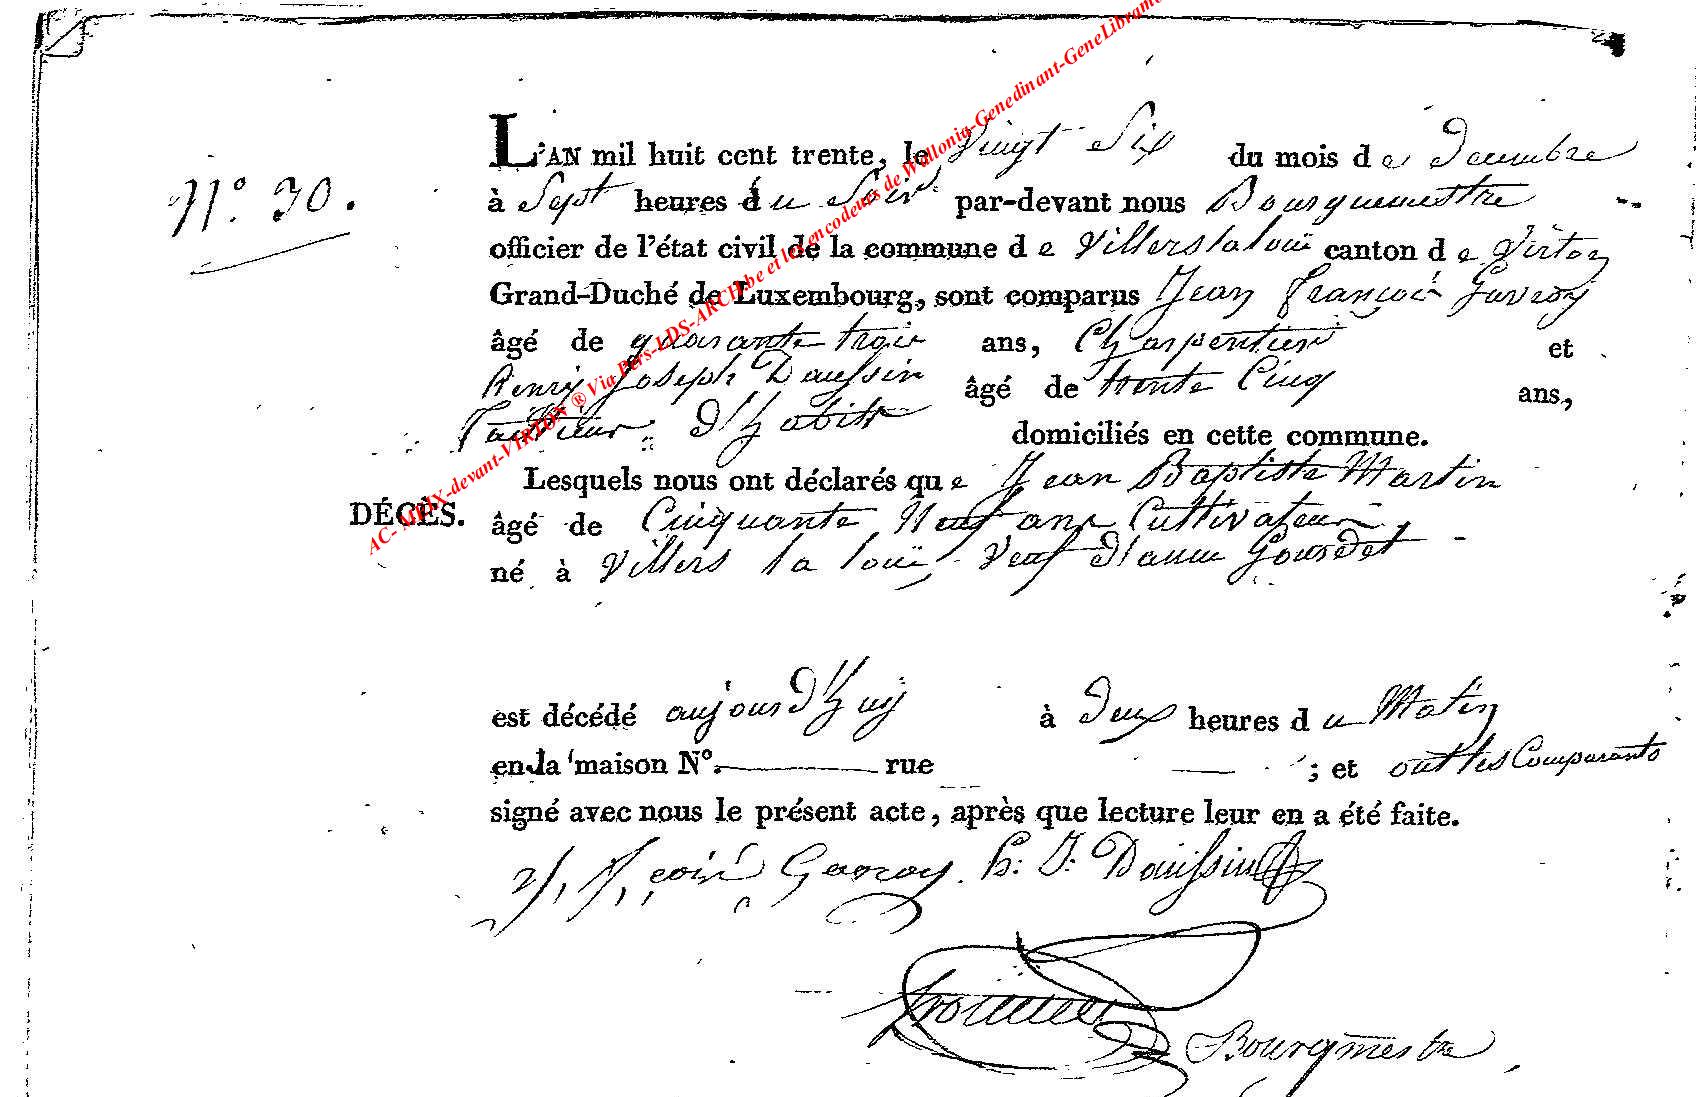 L'AN mil huit cent trente, le Vingt Six du mois de Decembre
N.º 30. à Sept heures du Soir par-devant nous Bourguemestre
officier de l'état civil de la commune de Villers la loüe canton de Virton
Grand-Duché de Luxembourg, sont comparus Jean François Gavroy
âgé de quarante trois ans, Charpentier et
Henry Joseph Daussin âgé de trente Cinq ans,
Tailleur d'habits domiciliés en cette commune.
Lesquels nous ont déclarés que Jean Baptiste Martin
DÉCÈS. âgé de Cinquante Neuf ans Cultivateur,
né à Villers la loüe Veuf d'anne Gourdet
est décédé aujourd'huy à deux heures du Matin
en la maison Nº. rue ; et ont les Comparants
signé avec nous le présent acte, après que lecture leur en a été faite.
J, f, çois Gavroy. h: J: Daussin
Bourgmestre
AC-MEIX-devant-VIRTON ® Via Pers-LDS-ARCH.be et les encodeurs de Wallonia-Genedinant-GeneLibramo